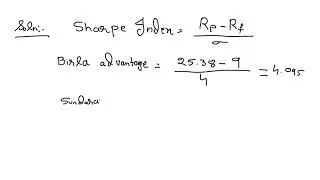 Soln:- Sharpe Index = Rp - Rf / σ
Birla advantage = 25.38 - 9 / 4 = 4.095
Sundara